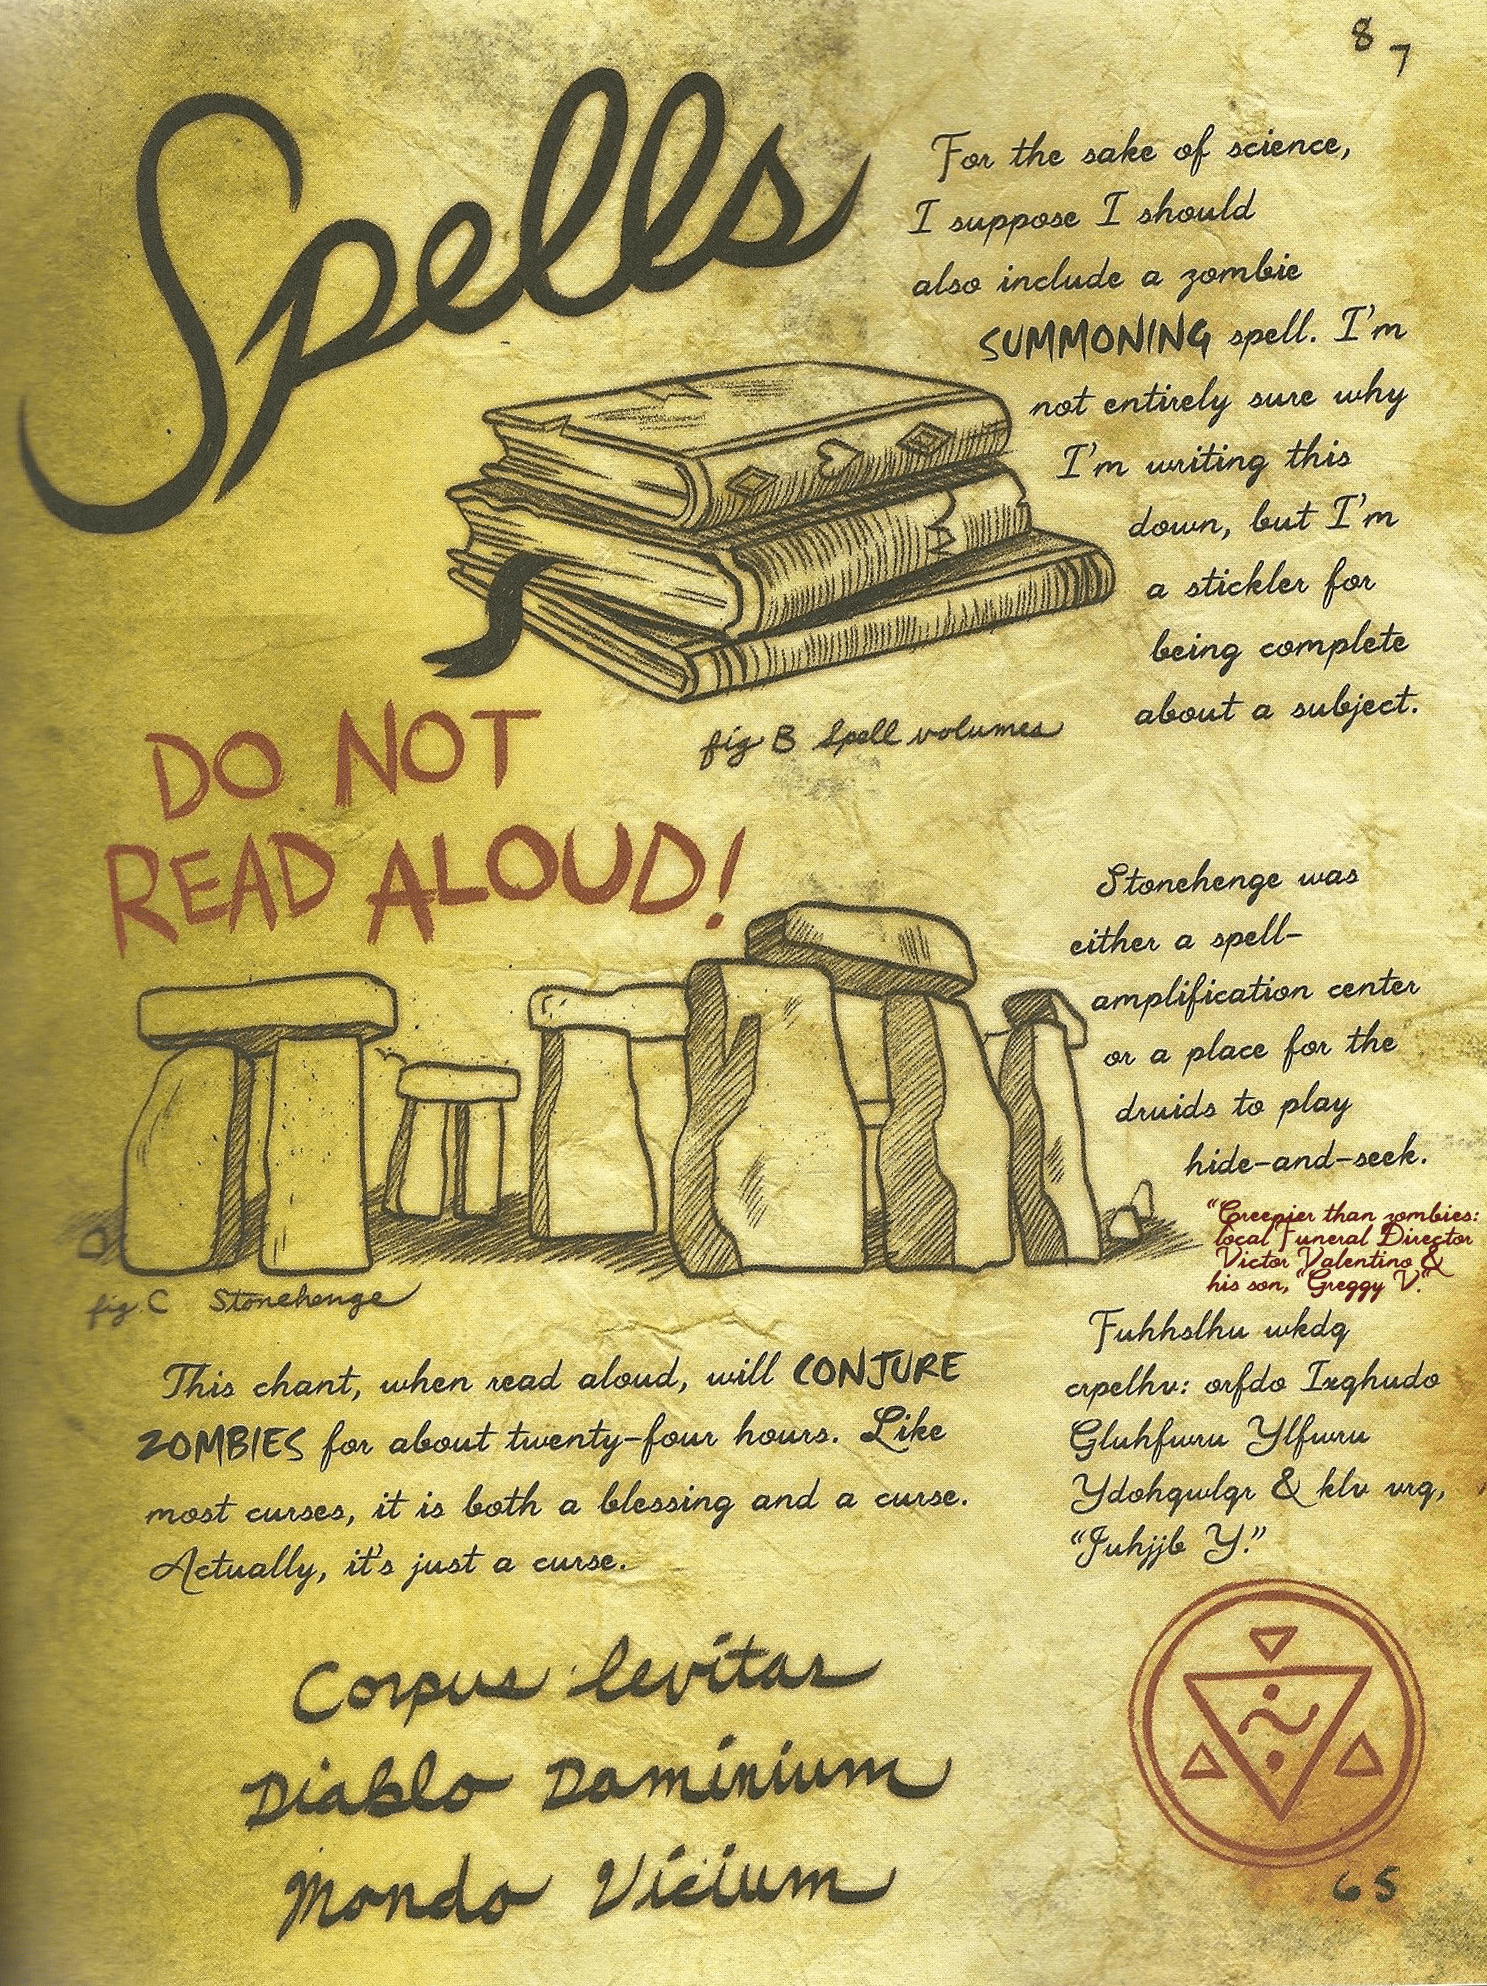 8 7
Spells
For the sake of science,
I suppose I should
also include a zombie
SUMMONING spell. I'm
not entirely sure why
I'm writing this
down, but I'm
a stickler for
being complete
about a subject.
fig B Spell volumes
DO NOT
READ ALOUD!
Stonehenge was
either a spell-
amplification center
or a place for the
druids to play
hide-and-seek.
"Creepier than zombies:
local Funeral Director
Victor Valentino &
his son, "Greggy V."
fig. C Stonehenge
This chant, when read aloud, will CONJURE
ZOMBIES for about twenty-four hours. Like
most curses, it is both a blessing and a curse.
Actually, it's just a curse.
Fuhhslhu wkdq
crpelhv: orfdo Ixqhudo
Gluhfwru Ylfwru
Ydohqwlqr & klv vrq,
"Juhjjb Y."
Corpus levitas
Diablo Daminium
Mondo Vicium
65